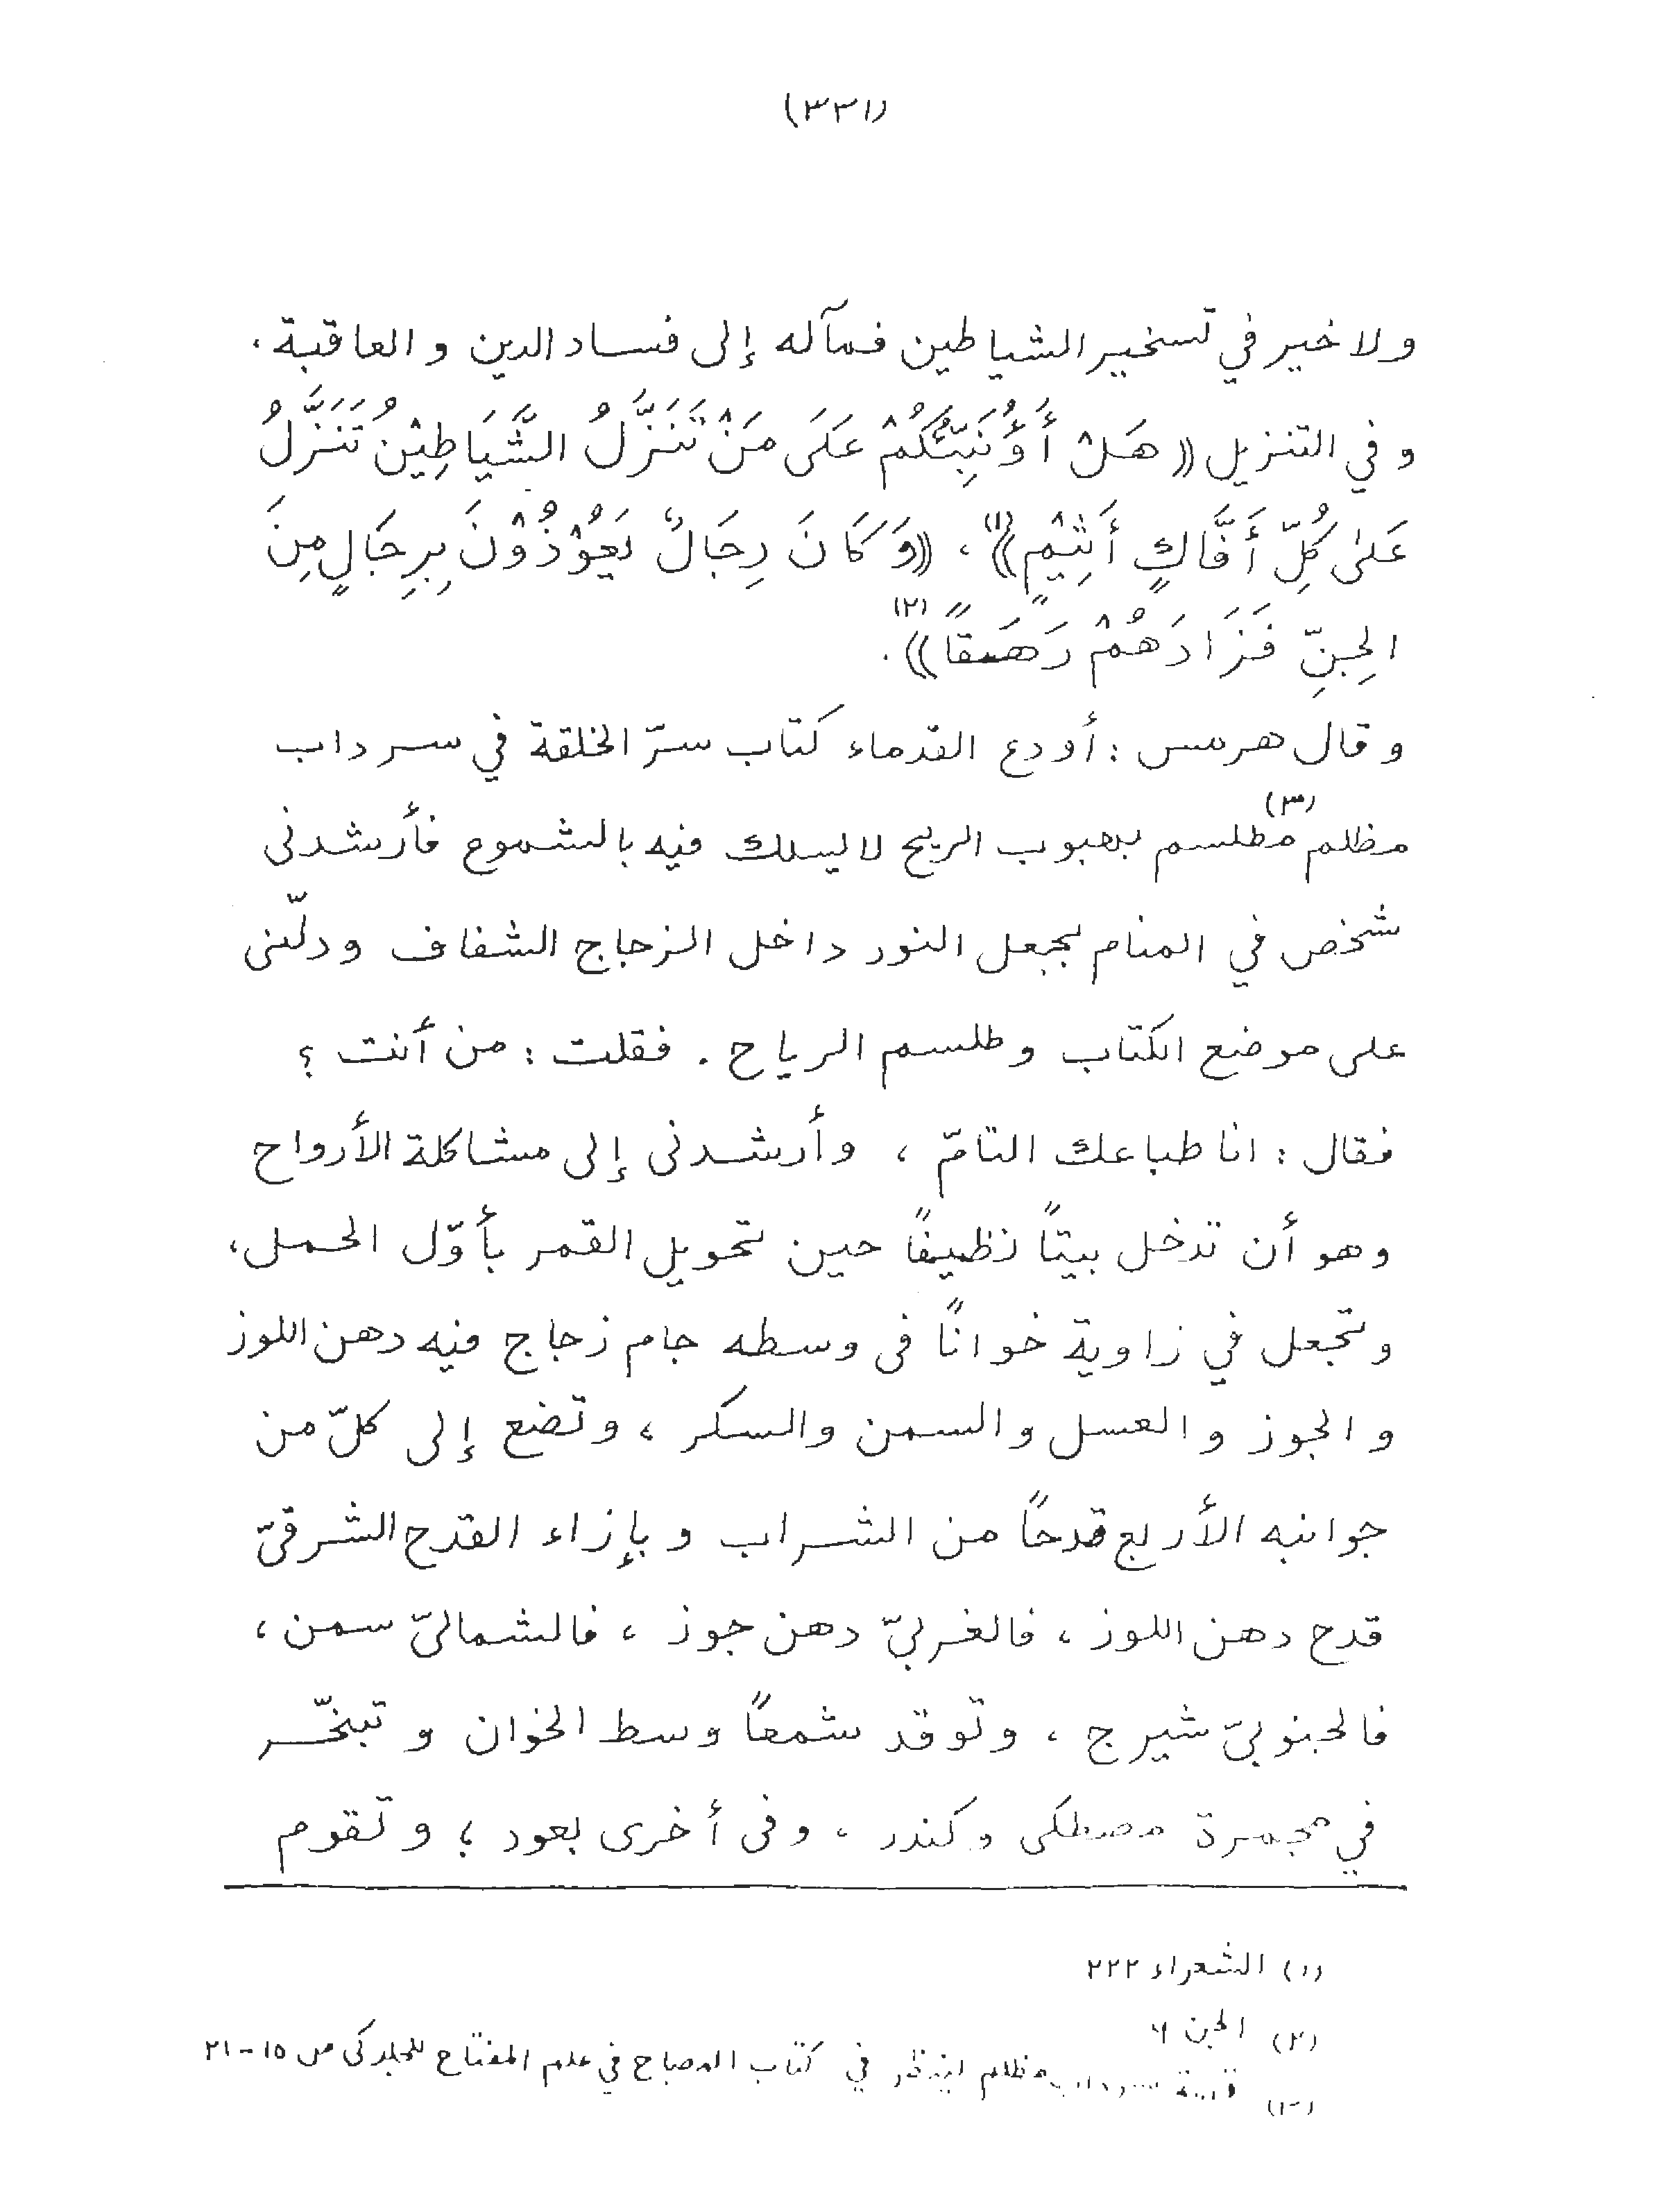 (٣٣١)
ولا خير في تسخير الشياطين فمآله إلى فساد الدين والعاقبة.
وفي التنزيل «هَلْ أُؤُنَبِّئُكُمْ عَلَى مَنْ تَنَزَّلُ الشَّيَاطِيْنُ تَنَزَّلُ
عَلىٰ كُلِّ أَفَّاكٍ أَثِيْمٍ»(١)، «وَكَانَ رِجَالٌ يَعُوْذُوْنَ بِرِجَالٍ مِنَ
الجِنِّ فَزَادَهُمْ رَهَقاً»(٢).
وقال هرمس: أودع القدماء كتاب سرّ الخلقة في سرداب
مظلم(٣) مطلسم بهبوب الريح لا يسلك فيه بالشموع فأرشدنى
شخص في المنام بجعل النور داخل الزجاج الشفاف ودلّنى
على موضع الكتاب وطلسم الرياح. فقلت: من أنت؟
فقال: انا طباعك التامّ، وأرشدنى إلى مشاكلة الأرواح
وهو أن تدخل بيتاً نظيفاً حين تحويل القمر بأوّل الحمل،
وتجعل في زاوية خواناً فى وسطه جام زجاج فيه دهن اللوز
والجوز والعسل والسمن والسكر، وتضع إلى كلّ من
جوانبه الأربع قدحاً من الشراب وبإزاء القدح الشرقىّ
قدح دهن اللوز، فالغربىّ دهن جوز، فالشمالىّ سمن،
فالجنوبىّ شيرج، وتوقد شمعاً وسط الخوان وتبخّر
في مجمرة مصطكى وكندر، وفى أخرى بعود؛ وتقوم
(١) الشعراء ٢٢٢
(٢) الجن ٦
(٣) سرداب مظلم اينظر في كتاب المصباح في علم المفتاح للجلدكى ص ١٥-٢١